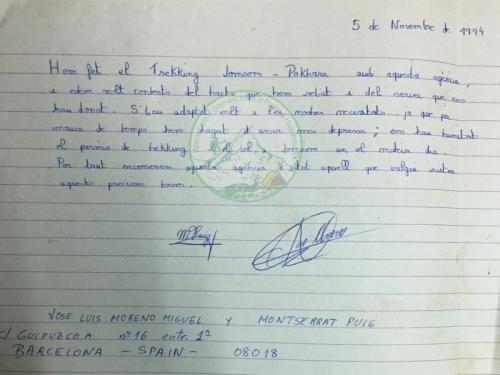 5 de Novembre de 1994
Hem fet el Trekking Jomsom - Pokhara amb aquesta agència,
i estem molt contents del tracte que hem rebut i del servei que ens
han donat. S'han adaptat molt a les nostres necessitats, ja que per
manca de temps hem hagut d'anar més depressa; ens han tramitat
el permís de trekking i el vol a Jomsom en el mateix dia.
Per tant recomanem aquesta agència a tot aquell que vulgui visitar
aquestes precioses terres.
M. Puig
VOSE LUIS MORENO MIGUEL y MONTSERRAT PUIG
C/ GUIPUZCOA nº 16 entr. 1ª
BARCELONA - SPAIN - 08018